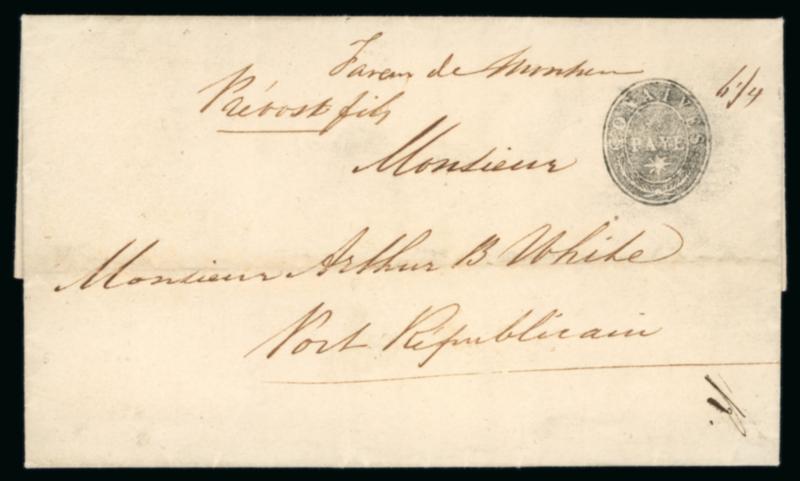 de
Prévost fils
6/4
GONAIVES
PAYE
Monsieur
Monsieur Arthur B White
Port Républicain